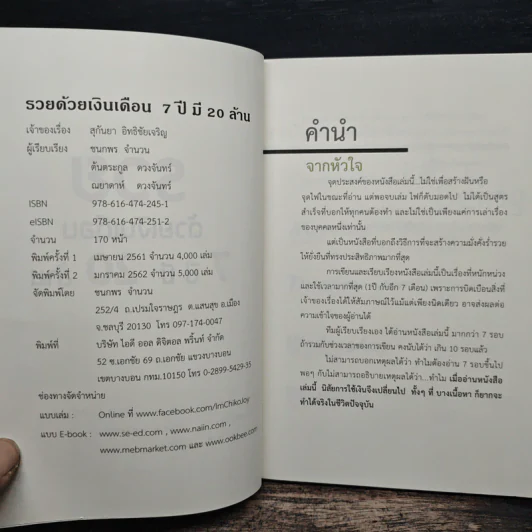 รวยด้วยเงินเดือน 7 ปี มี 20 ล้าน
เจ้าของเรื่อง สุกันยา อิทธิชัยเจริญ
ผู้เรียบเรียง ชนกพร จำนวน
ตันตระกูล ดวงจันทร์
ณยาดาห์ ดวงจันทร์
ISBN 978-616-474-245-1
eISBN 978-616-474-251-2
จำนวน 170 หน้า
พิมพ์ครั้งที่ 1 เมษายน 2561 จำนวน 4,000 เล่ม
พิมพ์ครั้งที่ 2 มกราคม 2562 จำนวน 5,000 เล่ม
จัดพิมพ์โดย ชนกพร จำนวน
252/4 ถ.เปรมใจราษฎร ต.แสนสุข อ.เมือง
จ.ชลบุรี 20130 โทร 097-174-0047
พิมพ์ที่ บริษัท ไอดี ออล ดิจิตอล พริ้นท์ จำกัด
52 ซ.เอกชัย 69 ถ.เอกชัย แขวงบางบอน
เขตบางบอน กทม.10150 โทร 0-2899-5429-35
ช่องทางจัดจำหน่าย
แบบเล่ม : Online ที่ www.facebook.com/ImChikoJoy
แบบ E-book : www.se-ed.com , www.naiin.com ,
www.mebmarket.com และ www.ookbee.com
คำนำ
จากหัวใจ
จุดประสงค์ของหนังสือเล่มนี้...ไม่ใช่เพื่อสร้างฝันหรือ
จุดไฟในขณะที่อ่าน แต่พอจบเล่ม ไฟก็ดับมอดไป ไม่ได้เป็นสูตร
สำเร็จที่บอกให้ทุกคนต้องทำ และไม่ใช่เป็นเพียงแค่การเล่าเรื่อง
ของบุคคลหนึ่งเท่านั้น
แต่เป็นหนังสือที่บอกถึงวิธีการที่จะสร้างความมั่งคั่งร่ำรวย
ให้ยั่งยืนที่ทรงประสิทธิภาพมากที่สุด
การเขียนและเรียบเรียงหนังสือเล่มนี้เป็นเรื่องที่หนักหน่วง
และใช้เวลามากที่สุด (1ปี กับอีก 7 เดือน) เพราะการบิดเบือนสิ่งที่
เจ้าของเรื่องได้ให้สัมภาษณ์ไว้แม้แต่เพียงนิดเดียว อาจส่งผลต่อ
ความเข้าใจของผู้อ่านได้
ทีมผู้เรียบเรียงเอง ได้อ่านหนังสือเล่มนี้ มากกว่า 7 รอบ
ถ้ารวมกับช่วงเวลาของการเขียน คงนับได้ว่า เกิน 10 รอบแล้ว
ไม่สามารถบอกเหตุผลได้ว่า ทำไมต้องอ่าน 7 รอบขึ้นไป
พอๆ กับไม่สามารถอธิบายเหตุผลได้ว่า...ทำไม เมื่ออ่านหนังสือ
เล่มนี้ นิสัยการใช้เงินจึงเปลี่ยนไป ทั้งๆ ที่ บางเนื้อหา ก็ยากจะ
ทำได้จริงในชีวิตปัจจุบัน